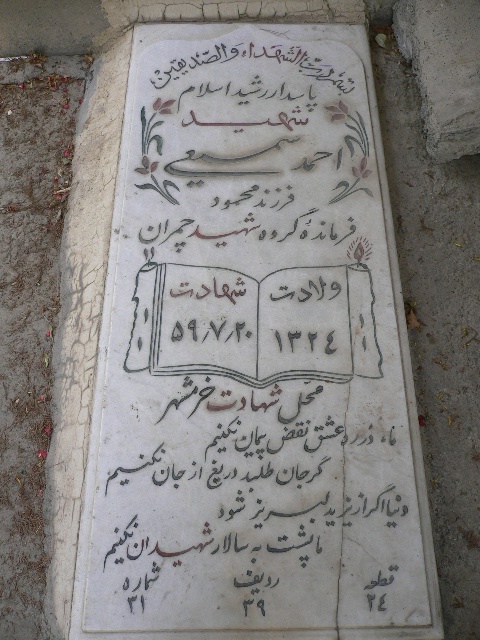 بسم رب الشهداء والصدیقین
پاسدار رشید اسلام
شهید
احمد سمیعی
فرزند محمود
فرماندهٔ گروه شهید چمران
ولادت
۱۳۲۴
شهادت
۵۹/۷/۲۰
محل شهادت خرمشهر
ما، در ره عشق نقض پیمان نکنیم
گر جان طلبد دریغ از جان نکنیم
دنیا اگر از یزید لبریز شود
ما پشت به سالار شهیدان نکنیم
قطعه ردیف شماره
۲۴ ۳۹ ۳۱